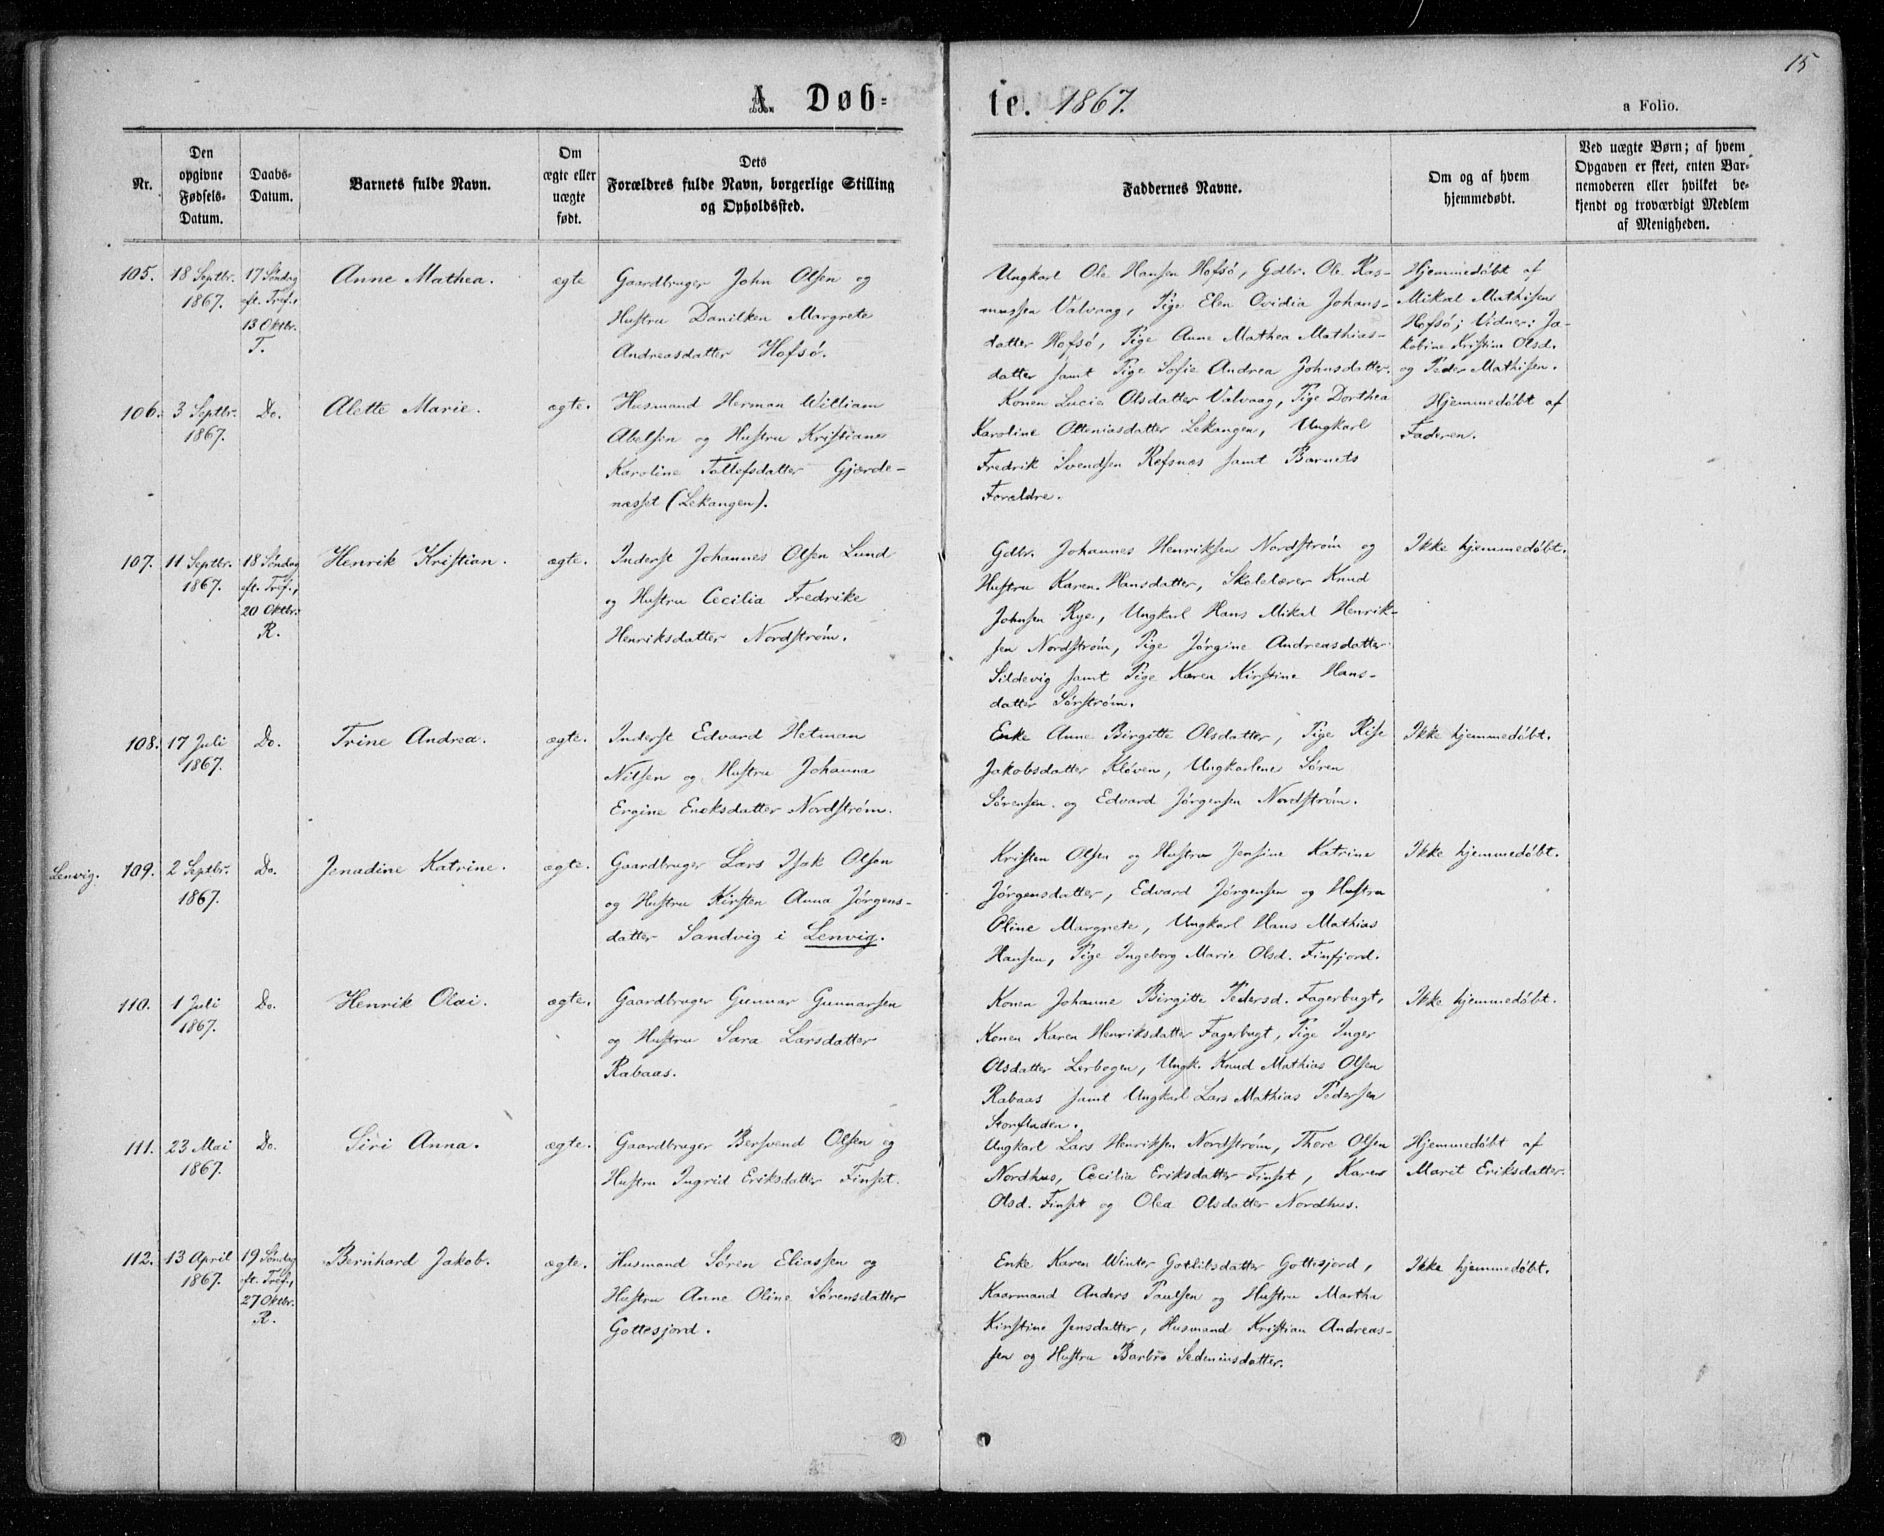 15
A. Døbte. 1867.
a Folio.
Nr.
Den opgivne Fødsels-Datum.
Daabs-Datum.
Barnets fulde Navn.
Om ægte eller uægte født.
Dets Forældres fulde Navn, borgerlige Stilling og Opholdssted.
Faddernes Navne.
Om og af hvem hjemmedøbt.
Ved uægte Børn; af hvem Opgaven er skeet, enten Barnemoderen eller hvilket bekjendt og troværdigt Medlem af Menigheden.
105.
18 Septbr.
1867.
17 Søndag
eft. Tref.,
13 Oktbr.
T.
Anne Mathea.
ægte
Gaardbruger John Olsen og
Hustru Danilken Margrete
Andreasdatter Hofsø.
Ungkarl Ole Hansen Hofsø, Gdbr. Ole Ras-
mussen Valvaag, Pige Elen Ovidia Johans-
datter Hofsø, Pige Anne Mathea Mathias-
datter samt Pige Sofie Andrea Johnsdatter.
Hjemmedøbt af
Mikal Mathisen
Hofsø; Vidner: Ja-
kobine Kristine Olsd.
og Peder Mathisen.
106.
3 Septbr.
1867.
Do.
Alette Marie.
ægte.
Husmand Herman William
Abelsen og Hustru Kristiane
Karoline Tollefsdatter Gjærde-
næsset (Lekangen).
Konen Lucie Olsdatter Valvaag, Pige Dorthea
Karoline Otteniasdatter Lekangen, Ungkarl
Fredrik Svendsen Refsnes samt Barnets
Forældre.
Hjemmedøbt af
Faderen.
107.
11 Septbr.
1867.
18 Søndag
eft. Tref.,
20 Oktbr.
R.
Henrik Kristian.
ægte.
Inderst Johannes Olsen Lund
og Hustru Cecilia Fredrike
Henriksdatter Nordstrøm.
Gdbr. Johannes Henriksen Nordstrøm og
Hustru Karen Hansdatter, Skolelærer Knud
Johnsen Rye, Ungkarl Hans Mikal Henrik-
sen Nordstrøm, Pige Jørgine Andreasdatter
Sildevig samt Pige Karen Kirstine Hans-
datter Sørstrøm.
Ikke hjemmedøbt.
108.
17 Juli
1867.
Do.
Trine Andrea.
ægte.
Inderst Edvard Hetman
Nilsen og Hustru Johanna
Ergine Enoksdatter Nordstrøm.
Enke Anne Birgitte Olsdatter, Pige Rise
Jakobsdatter Kløven, Ungkarlene Søren
Sørensen og Edvard Jørgensen Nordstrøm.
Ikke hjemmedøbt.
Lenvig.
109.
2 Septbr.
1867.
Do.
Jenadine Katrine.
ægte.
Gaardbruger Lars Isak Olsen
og Hustru Kirsten Anna Jørgens-
datter Sandvig i Lenvig.
Kristen Olsen og Hustru Jensine Katrine
Jørgensdatter, Edvard Jørgensen og Hustru
Oline Margrete, Ungkarl Hans Mathias
Hansen, Pige Ingeborg Marie Olsd. Finfjord.
Ikke hjemmedøbt.
110.
1 Juli
1867.
Do.
Henrik Olai.
ægte.
Gaardbruger Gunnar Gunnarsen
og Hustru Sara Larsdatter
Rabaas.
Konen Johanne Birgitte Pedersd. Fagerbugt,
Konen Karen Henriksdatter Fagerbugt, Pige Inger
Olsdatter Lerbogen, Ungk. Knud Mathias Olsen
Rabaas samt Ungkarl Lars Mathias Pedersen
Storfladen.
Ikke hjemmedøbt.
111.
23 Mai
1867.
Do.
Siri Anna.
ægte.
Gaardbruger Bersvend Olsen og
Hustru Ingrid Eriksdatter Finset.
Ungkarl Lars Henriksen Nordstrøm, Thore Olsen
Nordhus, Cecilia Eriksdatter Finset, Karen
Olsd. Finset og Olea Olsdatter Nordhus.
Hjemmedøbt af
Marit Eriksdatter.
112.
13 April
1867.
19 Søndag
eft. Tref.,
27 Oktbr.
R.
Bernhard Jakob.
ægte.
Husmand Søren Eliassen og
Hustru Anne Oline Sørensdatter
Gottesjord.
Enke Karen Winter Gotlitsdatter Gottesjord,
Kaarmand Anders Paulsen og Hustru Martha
Kirstine Jensdatter, Husmand Kristian Andreas-
sen og Hustru Barbro Sedeniusdatter.
Ikke hjemmedøbt.